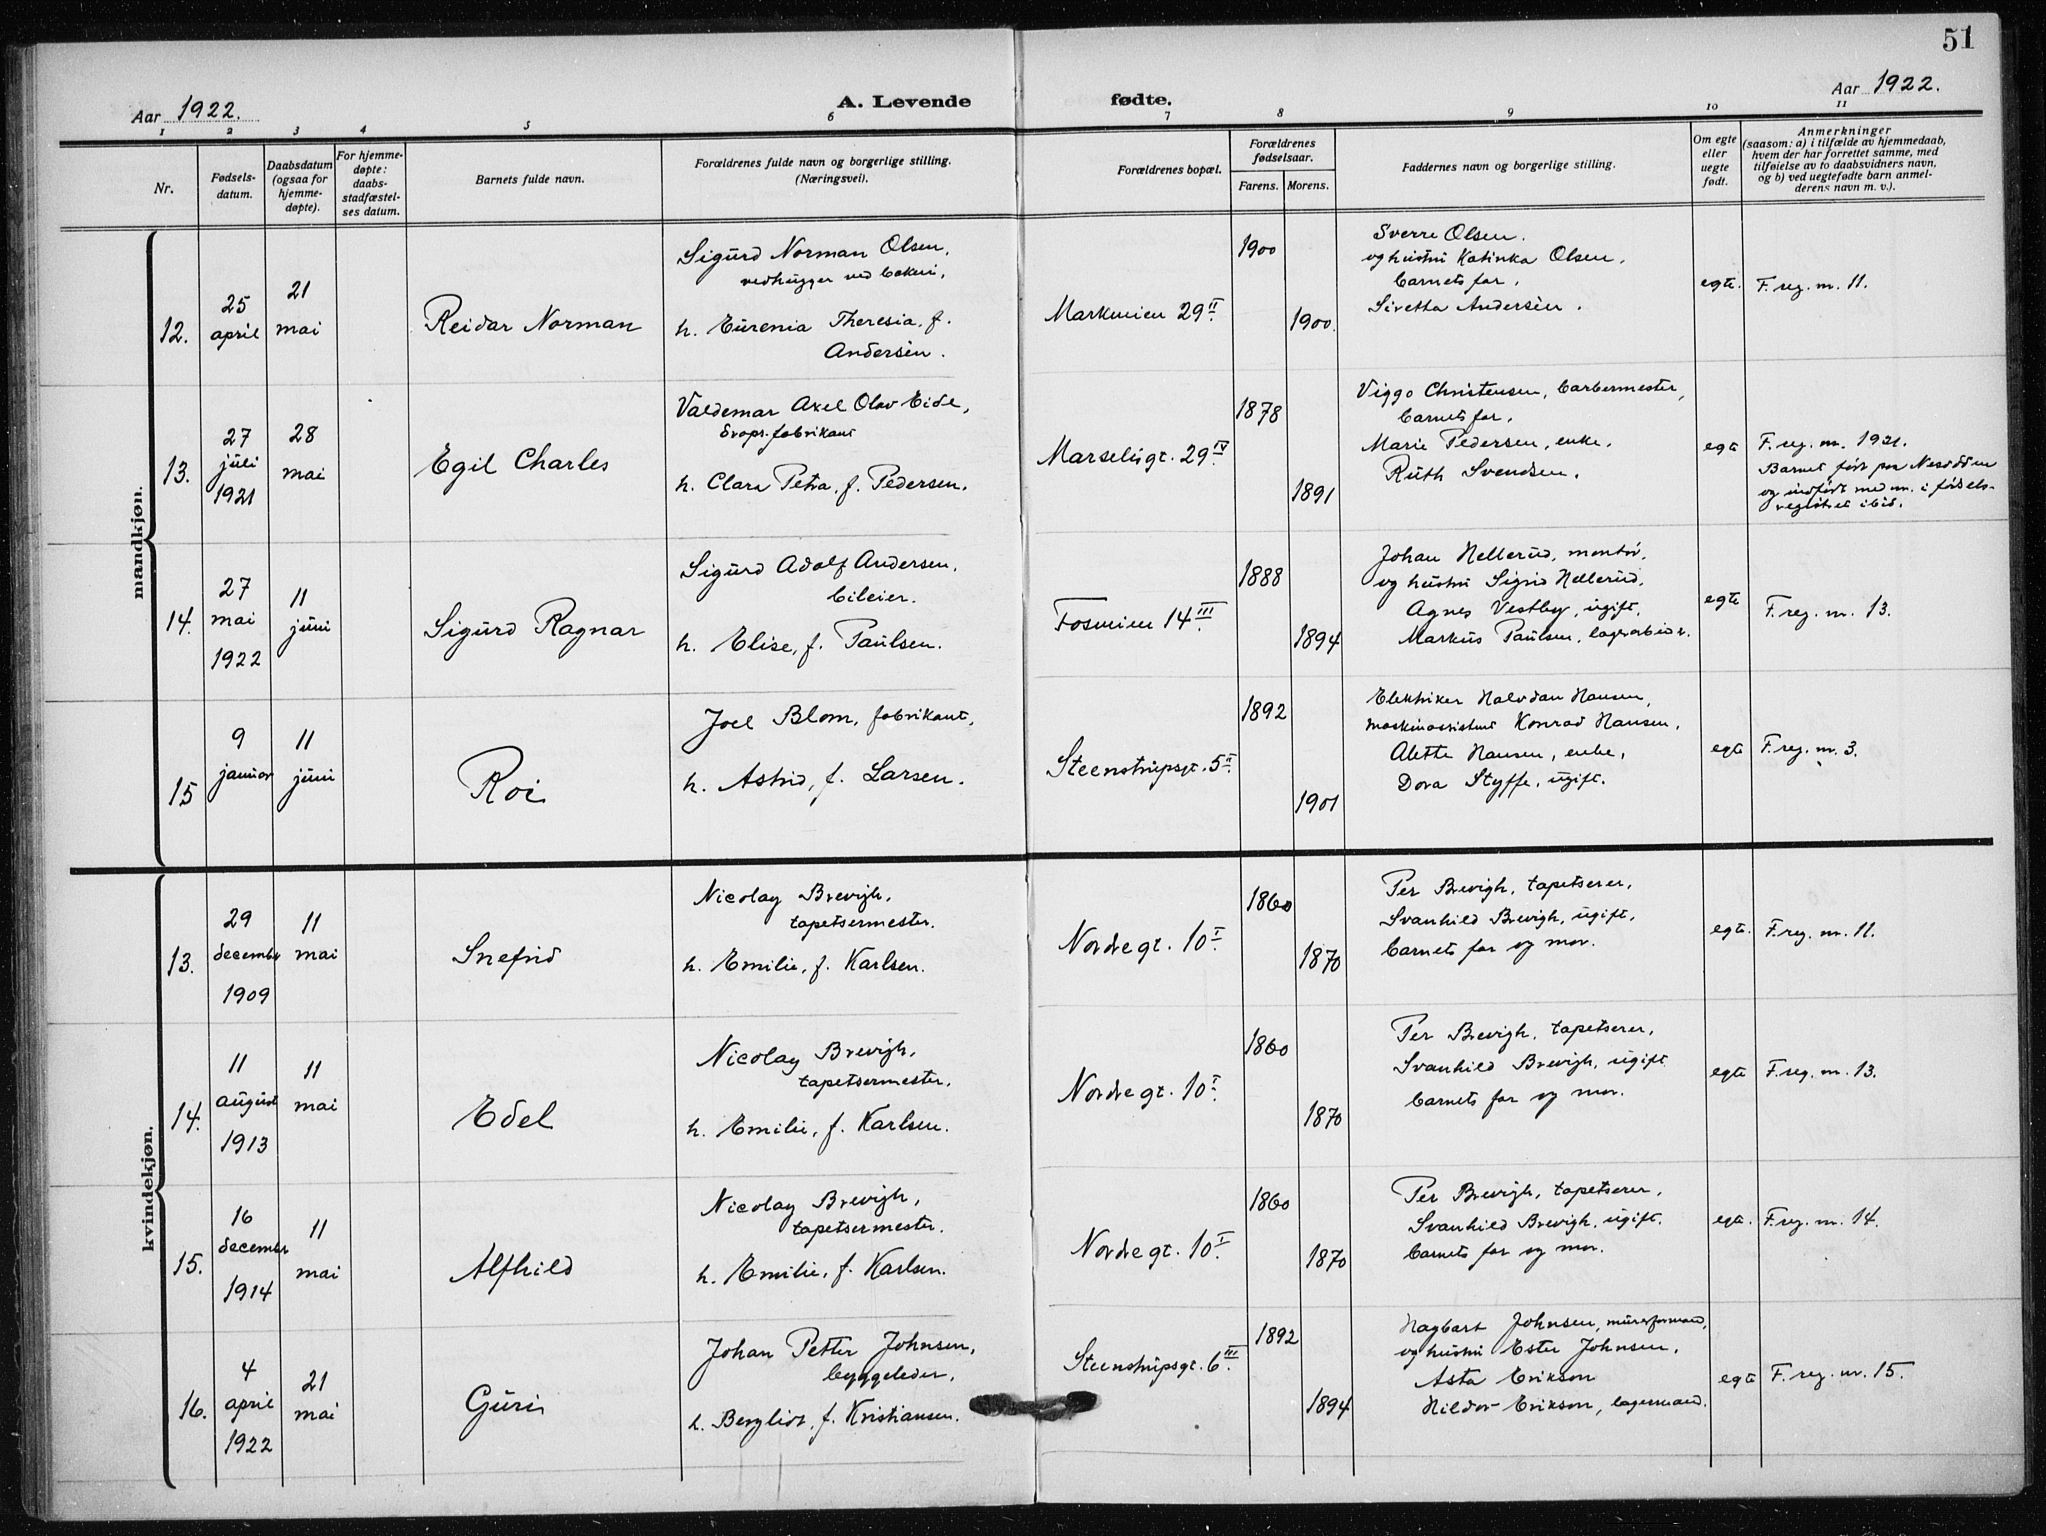 51
Aar 1922.
A. Levende fødte.
Aar 1922.
1 2 3 4 5 6 7 8 9 10 11
Nr.
Fødsels-
datum.
Daabsdatum
(ogsaa for
hjemme-
døpte).
For hjemme-
døpte:
daabs-
stadfæstel-
ses datum.
Barnets fulde navn.
Forældrenes fulde navn og borgerlige stilling.
(Næringsvei).
Forældrenes bopæl.
Forældrenes
fødselsaar.
Farens. Morens.
Faddernes navn, og borgerlige stilling.
Om egte
eller
uegte
født.
Anmerkninger
(saasom: a) i tilfælde av hjemmedaab,
hvem der har forrettet samme, med
tilføielse av to daabsvidners navn,
og b) ved uegtefødte barn anmel-
derens navn m. v.).
mandkjøn.
12.
25
april
21
mai
Reidar Norman
Sigurd Norman Olsen,
vedhugger ved bakeri,
h. Eurenia Theresia, f.
Andersen.
Markveien 29 II.
1900
1900.
Sverre Olsen.
og hustru Katinka Olsen,
barnets far,
Sivetta Andersen.
egte.
F. reg. nr. 11.
13.
27
juli
1921
28
mai
Egil Charles
Valdemar Axel Olav Eide,
drops.fabrikant
h. Clara Petra, f. Pedersen.
Marselisgt. 29 IV.
1878
1891
Viggo Christensen, barbermester,
barnets far,
Marie Pedersen, enke.
Ruth Svendsen.
egte
F. reg. nr. 1921.
Barnet født paa Nesodden
og indført med nr. i fødsels-
registret ibid.
14.
27
mai
1922
11
juni
Sigurd Ragnar
Sigurd Adolf Andersen,
bileier.
h. Elise, f. Paulsen.
Fosveien 14 III.
1888
1894
Johan Hellerud, montør,
og hustru Sigrid Hellerud,
Agnes Vestby, ugift,
Markus Paulsen, lagerarbeider.
egte
F. reg. nr. 13.
15
9
januar
11
juni
Roi
Joel Blom, fabrikant,
h. Astrid, f. Larsen.
Steenstrupsgt. 5 II.
1892
1901
Elektriker Halvdan Hansen,
maskinassistent Konrad Hansen,
Alette Hansen, enke,
Dora Styffe, ugift.
egte
F. reg. nr. 3.
kvindekjøn.
13.
29
december
1909
11
mai
Snefrid
Nicolay Brevigh,
tapetsermester.
h. Emilie, f. Karlsen.
Nordregt. 10 I.
1860
1870
Per Brevigh, tapetserer,
Svanhild Brevigh, ugift,
barnets far og mor.
egte.
F. reg. nr. 11.
14.
11
august
1913
11
mai
Edel
Nicolay Brevigh,
tapetsermester,
h. Emilie, f. Karlsen.
Nordregt. 10 I.
1860
1870
Per Brevigh, tapetserer,
Svanhild Brevigh, ugift
barnets far og mor.
egte
F. reg. nr. 13.
15.
16
december
1914
11
mai
Alfhild
Nicolay Brevigh,
tapetsermester.
h. Emilie, f. Karlsen.
Nordregt. 10 I.
1860
1870
Per Brevigh, tapetserer,
Svanhild Brevigh, ugift.
barnets far og mor.
egte.
F. reg. nr. 14.
16.
4
april
1922
21
mai
Guri
Johan Petter Johnsen,
byggeleder,
h. Bergliot, f. Kristiansen.
Steenstrupsgt. 6 III.
1892
1894
Hagbart Johnsen, murerformand,
og hustru Ester Johnsen,
Asta Erikson
Hildor Erikson, lagermand.
egte
F. reg. nr. 15.